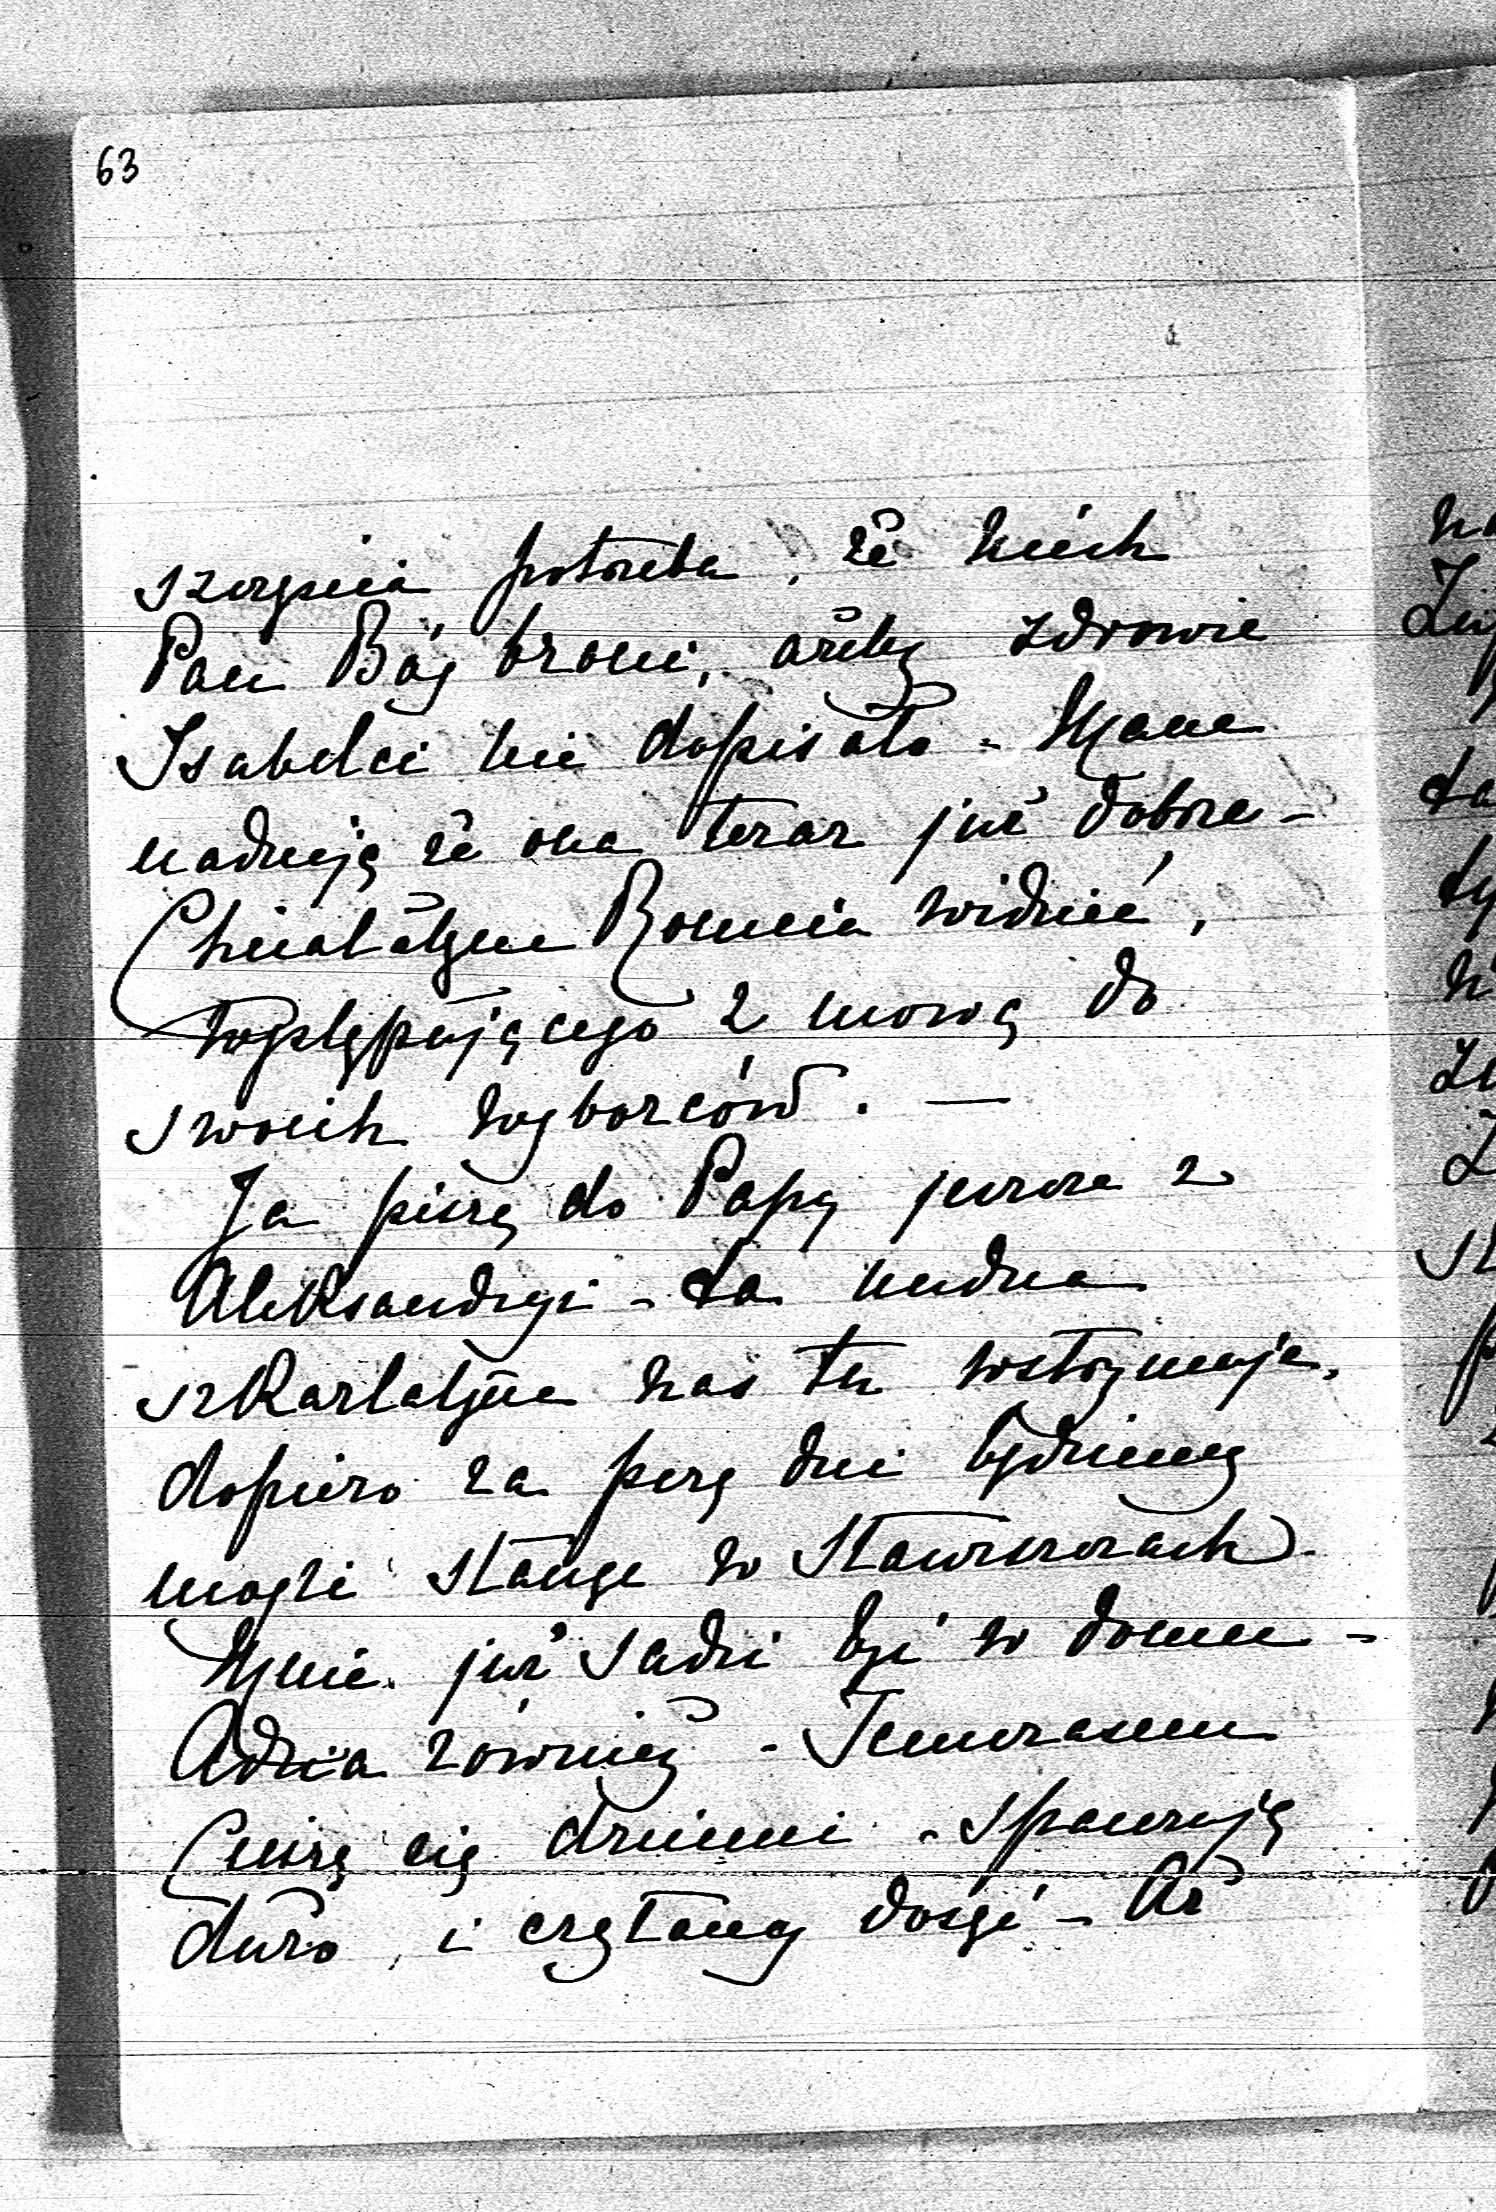 63
potrzeba, że niech
Pan Bóg broni, ażeby zdrowie
Izabelci nie dopisało - Mam
nadzieję że ona teraz już dobrze -
Chciałabym Romcia widzieć,
występującego z mową do
swoich wyborców. —
Ja piszę do Papy jeszcze z
Aleksandryi - ta nudna
szkarlatyna nas tu wstrzymuje,
dopiero za parę dni będziemy
mogli stanąć w Stawiszczach
Mnie już sądzi być w domu -
Adzia również - Tymczasem
Cieszę się dziećmi - spaceruję
dużo, i czytamy dosyć - Az